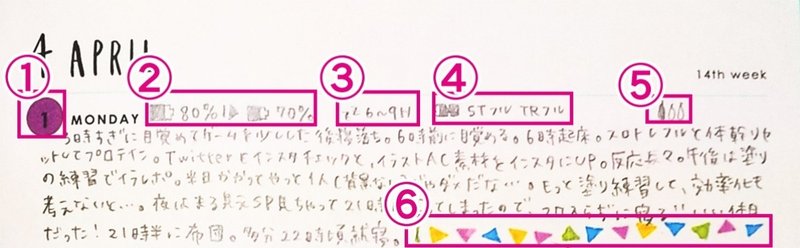 4 APRIL
14th week
① ② ③ ④ ⑤
1 MONDAY 80% 70% 6〜9H STフル TRフル
5時すぎに目覚めてゲームを少しした後寝落ち。6時前に目覚める。6時起床。スロトレフルと体幹リセ
ットしてプロテイン。Twitterとインスタチェックと、イラストAC素材をインスタにUP。反応よく。午後は塗り
の練習でイラレポ。半日かかってやっと1人(背景ない) ダメだな…。もっと塗り練習して、効率化も
考えないと…。夜はまる見えSP見ちゃって21時 てしまったので、 に寝る!!いい休日
⑥
だった!21時半に布団。多分22時頃就寝。